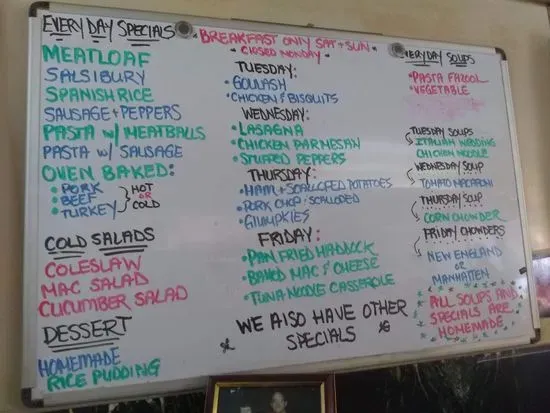 EVERY DAY SPECIALS
MEATLOAF
SALSIBURY
SPANISH RICE
SAUSAGE + PEPPERS
PASTA W/ MEATBALLS
PASTA W/ SAUSAGE
OVEN BAKED:
• PORK
• BEEF
• TURKEY
HOT
OR
COLD
COLD SALADS
COLESLAW
MAC SALAD
CUCUMBER SALAD
DESSERT
HOMEMADE
RICE PUDDING
BREAKFAST ONLY SAT + SUN
CLOSED MONDAY
TUESDAY:
• GOULASH
• CHICKEN & BISQUITS
WEDNESDAY:
• LASAGNA
• CHICKEN PARMESAN
• STUFFED PEPPERS
THURSDAY:
• HAM + SCALLOPED POTATOES
• PORK CHOP + SCALLOPED
• GLUMPKIES
FRIDAY:
• PAN FRIED HADDOCK
• BAKED MAC & CHEESE
• TUNA NOODLE CASSEROLE
WE ALSO HAVE OTHER
SPECIALS
EVERYDAY SOUPS
• PASTA FAZOOL
• VEGETABLE
TUESDAY SOUPS
ITALIAN WEDDING
CHICKEN NOODLE
WEDNESDAY SOUP
TOMATO MACARONI
THURSDAY SOUP
CORN CHOWDER
FRIDAY CHOWDERS
NEW ENGLAND
OR
MANHATTEN
ALL SOUPS AND
SPECIALS ARE
HOMEMADE